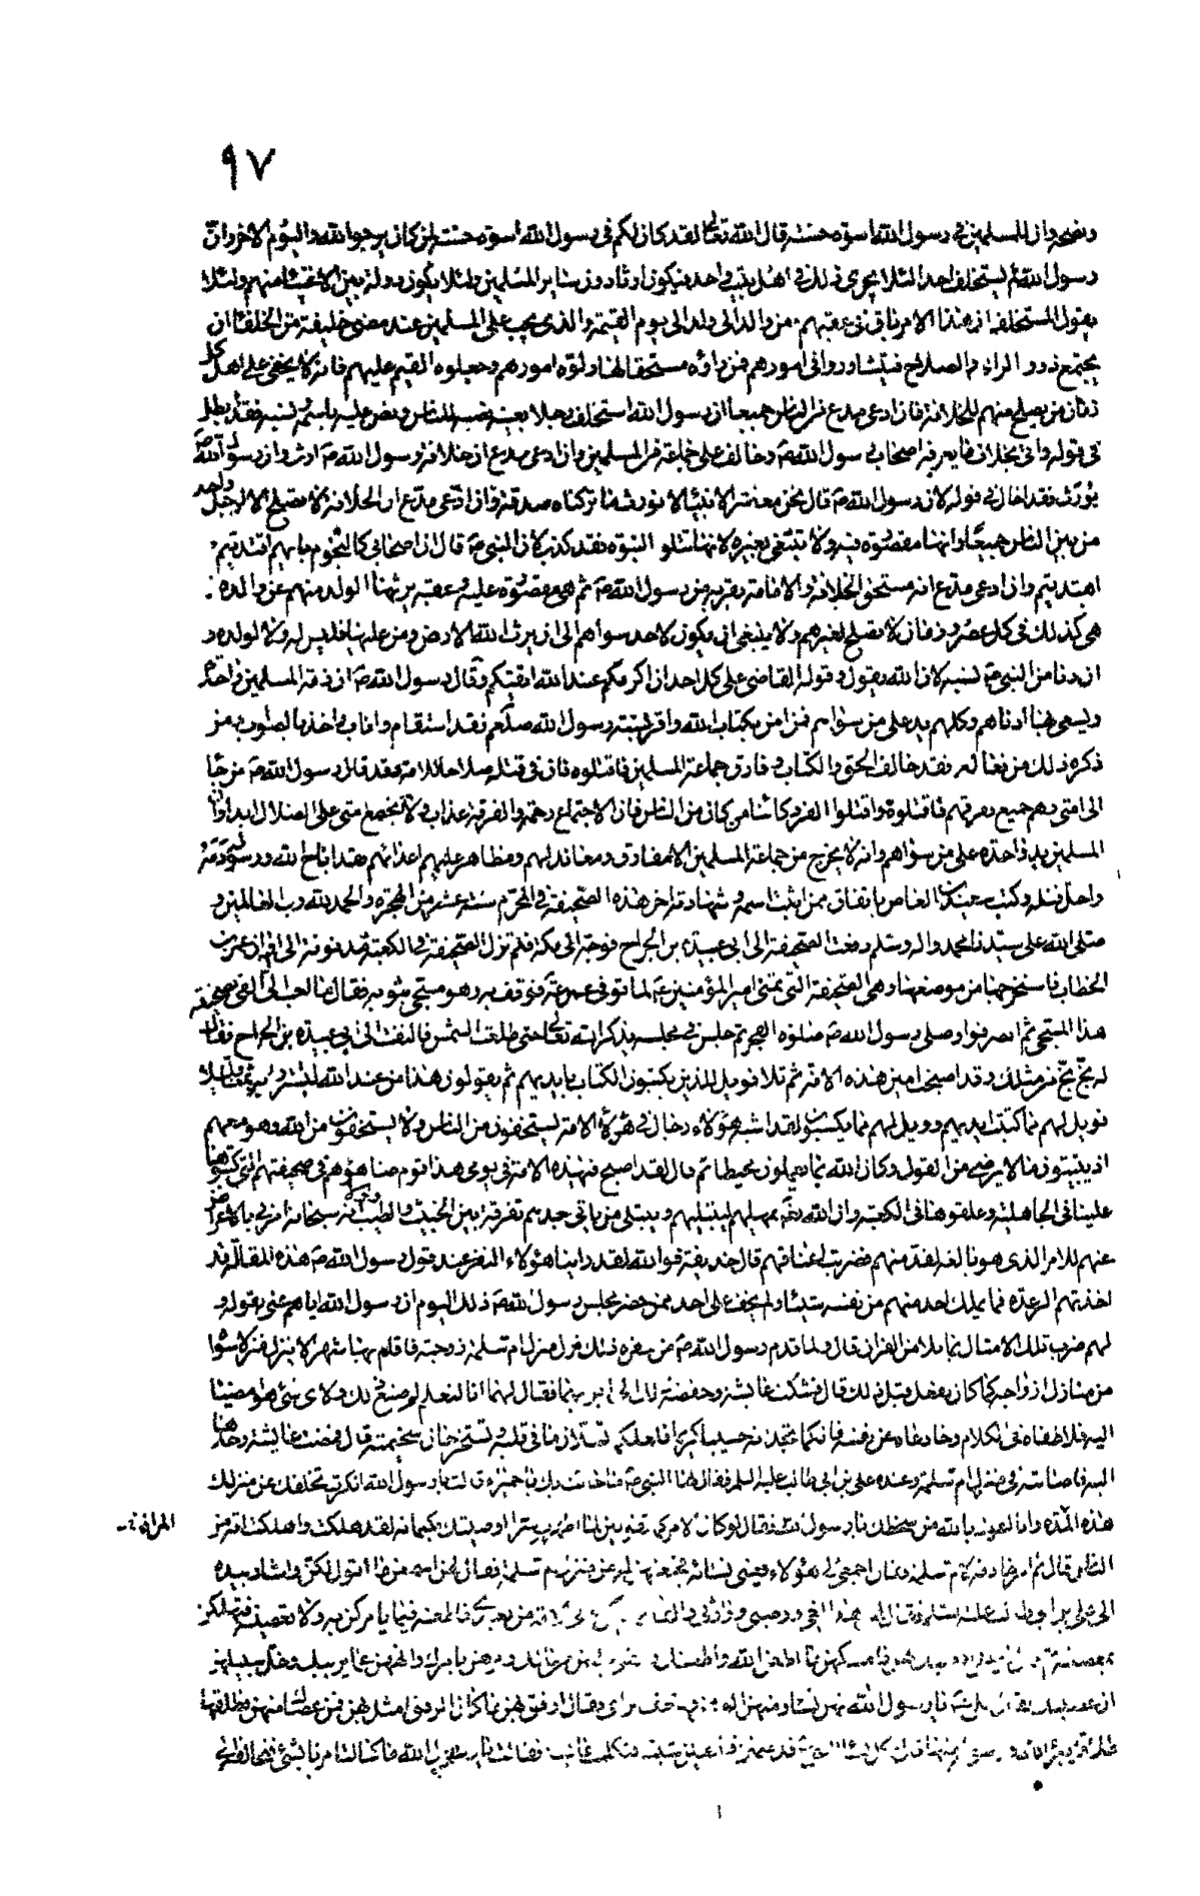 ٩٧
ونصحه وان للمسلمين في رسول الله اسوة حسنة قال الله تعالى لقد كان لكم في رسول الله اسوة حسنة لمن كان يرجوا الله واليوم الاخر وان
رسول الله لم يستخلف احدا لئلا يجري ذلك في اهل بيت واحد فيكون ارثا دون ساير المسلمين ولئلا يكون دولة بين الاغنياء منهم ولئلا
يقول المستخلف ان هذا الامر باق في عقبه من والد الى ولد الى يوم القيمة والذي يجب على المسلمين عند مضي خليفة من الخلفاء ان
يجتمع ذوو الراي والصلاح فيتشاوروا في امورهم فمن راوه مستحقا لها ولوه امورهم وجعلوه القيم عليهم فانه لا يخفى على اهل كل
زمان من يصلح منهم للخلافة فان ادعى مدع من الناس جميعا ان رسول الله استخلف رجلا بعينه نصبه للناس ونص عليه باسمه ونسبه فقد ابطل
في قوله واتى بخلاف ما يعرفه اصحاب رسول الله ص وخالف على جماعة من المسلمين وان ادعى مدع ان خلافة رسول الله ص ارث وان رسول الله ص
يورث فقد احال في قوله لان رسول الله ص قال نحن معشر الانبياء لا نورث ما تركناه صدقة وان ادعى مدع ان الخلافة لا تصلح الا لرجل واحد
من بين الناس جميعا وانها مقصورة فيه ولا تنبغي لغيره لانها تتلو النبوة فقد كذب لان النبي ص قال اصحابي كالنجوم بايهم اقتديتم
اهتديتم وان ادعى مدع انه مستحق الخلافة والامامة بقربه من رسول الله ص ثم هي مقصورة عليه وعقبه يرثها الولد منهم عن والده
هي كذلك في كل عصر وزمان لا تصلح لغيرهم ولا ينبغي ان يكون لاحد سواهم الى ان يرث الله الارض ومن عليها فليس له ولا لولده و
ان دنا من النبي ص نسبه لان الله يقول وقوله القاضي على كل احد ان اكرمكم عند الله اتقيكم وقال رسول الله ص ان ذمة المسلمين واحدة
ويسعى بها ادناهم وكلهم يد على من سواهم فمن امن بكتاب الله واقر بسنة رسول الله صلعم فقد استقام واناب واخذ بالصواب ومن
ذكره ذلك من فعالهم فقد خالف الحق والكتاب وفارق جماعة المسلمين فاقتلوه فان في قتله صلاحا للامة وقد قال رسول الله ص من جاء
الى امتي وهم جميع ففرقهم فاقتلوه واقتلوا الفرد كائنا من كان من الناس فان الاجتماع رحمة والفرقة عذاب ولا تجتمع امتي على الضلال ابدا وان
المسلمين يد واحدة على من سواهم وانه لا يخرج من جماعة المسلمين الا مفارق ومعاند لهم ومظاهر عليهم اعدائهم فقد اباح الله ورسوله دمه
واحل قتله وكتب سعيد بن العاص باتفاق ممن اثبت اسمه وشهادته اخر هذه الصحيفة في المحرم سنة عشر من الهجرة والحمد لله رب العالمين و
صلى الله على سيدنا محمد واله وسلم دفعت الصحيفة الى ابي عبيدة بن الجراح فوجه الى مكة فلم تزل الصحيفة في الكعبة مدفونة الى اوان عمر بن
الخطاب فاستخرجها من موضعها وهي الصحيفة التي تمنى امير المؤمنين ع لما توفي عمر فوقف به وهو مسجى بثوبه فقال ما احب الى ان القى الله بصحيفة
هذا المسجى ثم انصرفوا وصلى رسول الله ص صلوة الفجر ثم جلس في مجلسه يذكر الله تعالى حتى طلعت الشمس فالتفت الى ابي عبيدة بن الجراح فقال
له بخ بخ من مثلك وقد اصبحت امين هذه الامة ثم تلا فويل للذين يكتبون الكتاب بايديهم ثم يقولون هذا من عند الله ليشتروا به ثمنا قليلا
فويل لهم مما كتبت ايديهم وويل لهم مما يكسبون لقد اشبه هؤلاء رجال في هذه الامة يستخفون من الناس ولا يستخفون من الله وهو معهم
اذ يبيتون ما لا يرضى من القول وكان الله بما يعملون محيطا ثم قال لقد اصبح في هذه الامة في يومي هذا قوم ضاهوهم في صحيفتهم التي كتبوها
علينا في الجاهلية وعلقوها في الكعبة وان الله تعالى يمهلهم ليبتليهم ويبتلي من ياتي بعدهم تفرقة بين الخبيث والطيب ولولا انه سبحانه امرني بالاعراض
عنهم للامر الذي هو بالغه لقدمتهم فضربت اعناقهم قال حذيفة فوالله لقد راينا هؤلاء النفر عند قول رسول الله ص هذه المقالة وقد
اخذتهم الرعدة فما يملك احد منهم من نفسه شيئا ولم يخف على احد ممن حضر مجلس رسول الله ص ذلك اليوم ان رسول الله اياهم عنى بقوله و
لهم ضرب تلك الامثال بما تلا من القران قال ولما قدم رسول الله ص من سفره ذلك نزل منزل ام سلمة زوجته فاقام بها شهرا لا ينزل منزلا سواه
من منازل ازواجه كما كان يفعل قبل ذلك قال فشكت عائشة وحفصة ذلك الى ابويهما فقال لهما انا لنعلم لم صنع ذلك ولاي شيء هو امضيا
اليه فلاطفاه في الكلام وخادعاه عن نفسه فانكما تجدانه حييا كريما فلعلكما تسلان ما في قلبه وتستخرجان سخيمته قال فمضت عائشة وحدها
اليه فاصابته في منزل ام سلمة وعنده علي بن ابي طالب عليه السلم فقال لها النبي ص ما جاء بك يا حميراء قالت يا رسول الله انكرت تخلفك عن منزلك
هذه المدة وانا اعوذ بالله من سخطك يا رسول الله فقال لو كان الامر كما تقولين لما اظهرت سرا اوصيتك بكتمانه لقد هلكت واهلكت امة من
الناس قال ثم امر خادمة لام سلمة وقال اجمعي لي هؤلاء يعني نسائه فجمعتهن له في منزل ام سلمة فقال لهن اسمعن ما اقول لكن واشار بيده
الى علي بن ابي طالب عليه السلم فقال لهن هذا اخي ووصيي ووارثي والقائم فيكن وفي الامة من بعدي فاطعنه فيما يامركن به ولا تعصينه فتهلكن
بمعصيته ثم قال يا علي اوصيك بهن فامسكهن ما اطعن الله واطعنك وانفق عليهن من مالك ومرهن بامرك وانههن عما يريبك وخل سبيلهن
ان عصينك فقال علي يا رسول الله انهن نساء وفيهن الوهن وضعف الراي فقال ارفق بهن ما كان الرفق امثل بهن فمن عصاك منهن فطلقها
المرانة